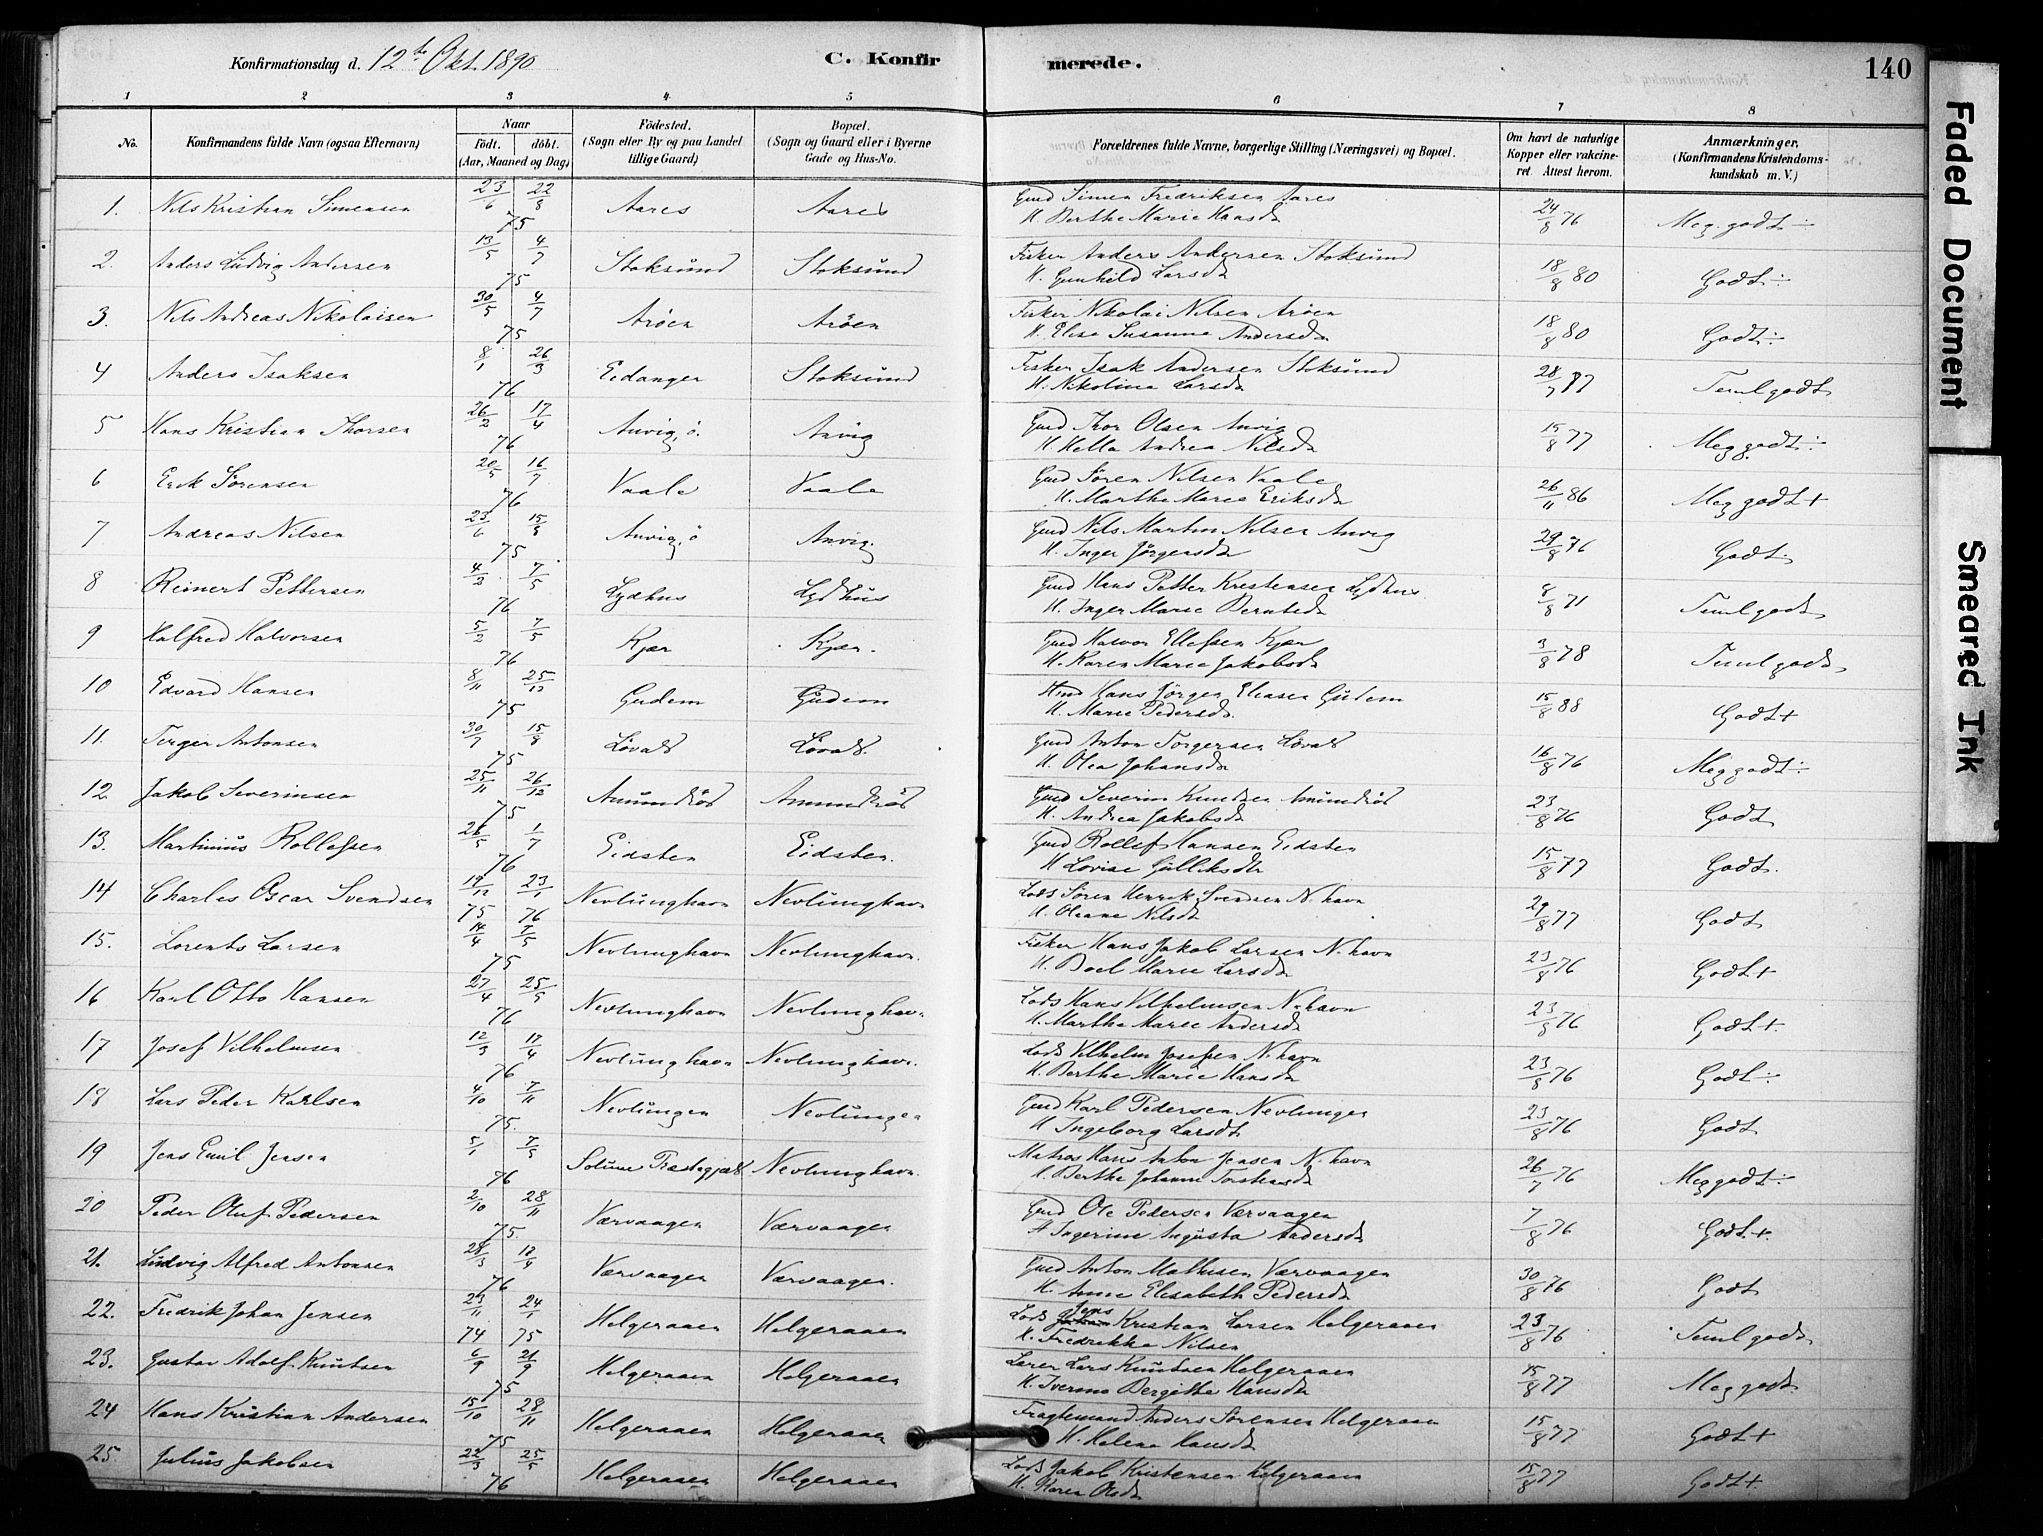 Konfirmationsdag d. 12te Okt. 1890
C. Konfirmerede.
140
Faded Document
Smeared Ink
1 2 3 4 5 6 7 8
No. | Konfirmandens fulde Navn (ogsaa Efternavn) | Naar Födt. döbt. (Aar, Maaned og Dag) | Födested. (Sogn eller By og paa Landet tillige Gaard) | Bopæl. (Sogn og Gaard eller i Byerne Gade og Hus-No. | Forældrenes fulde Navne, borgerlige Stilling (Næringsvei) og Bopæl. | Om havt de naturlige Kopper eller vakcineret Attest herom. | Anmærkninger. (Konfirmandens Kristendomskundskab m. V.)
1. Nils Kristian Simensen 23/6 22/8 75 Aares Aares Gmd Simen Fredriksen Aares 24/8 76 Meg. godt ÷
H. Berthe Marie Hansd
2. Anders Ludvig Andersen 13/5 4/7 75 Stoksund Stoksund Fisker Anders Andersen Stoksund 18/8 80 Godt ÷
H. Gunhild Larsd
3. Nils Andreas Nikolaisen 30/5 4/7 75 Aröen Aröen Fisker Nikolai Nilsen Aröen 18/8 80 Godt ÷
H. Elise Susanne Andersd
4 Anders Isaksen 8/1 26/3 76 Eidanger Stoksund Fisker Isak Andersen Stoksund 28/7 77 Temlgodt
H. Nikolina Larsd
5 Hans Kristian Thorsen 26/2 17/4 76 Anvig, ö. Anvig Gmd Thor Olsen Anvig 15/8 77 Meg godt ÷
H. Helle Andrea Nilsd
6 Erik Sörensen 20/5 16/7 76 Vaale Vaale Gmd Sören Nilsen Vaale 26/11 86 Meg godt +
H. Marthe Marie Eriksd
7 Andreas Nilsen 23/6 15/8 75 Anvig, ö Anvig. Gmd Nils Martin Nilsen Anvig 29/8 76 Godt
H. Inger Jörgensd
8 Reinert Pettersen 4/2 7/5 76 Lydhus Lydhus Gmd Hans Petter Kristensen Lydhus 8/8 71 Temlgodt
H. Inger Marie Berntsd
9 Halfred Halvorsen 5/2 7/5 76 Kjær Kjær. Gmd Halvor Ellefsen Kjær 3/8 78 Temlgodt
H. Karen Marie Jakobsd
10 Edvard Hansen 8/11 25/12 75 Gudem Gudem Hmd Hans Jörgen Eliasen Gudem 15/8 88 Godt +
H. Marie Pedersd.
11. Torger Antonsen 30/7 15/8 75 Lövald Lövald. Gmd Anton Torgersen Lövald 16/8 76 Meg godt ÷
H. Olea Johansd
12 Jakob Severinsen 25/11 26/12 75 Amundröd Amundröd Gmd Severin Knudsen Amundröd 23/8 76 Godt
H. Andrea Jakobsd
13. Martinius Rollefsen 26/5 1/7 76 Eidsten Eidsten. Gmd Rollef Hansen Eidsten 15/8 77 Godt.
H Lovise Gulliksdtr
14 Charles Oscar Svendsen 19/12 75 23/1 76 Nevlunghavn Nevlunghavn Lods Sören Henrik Svendsen N. havn 29/8 77 Godt
H. Oleane Nilsd
15. Lorents Larsen 14/4 7/5 75 Nevlunghavn Nevlunghavn. Fisker Hans Jakob Larsen N. havn 23/8 76 Godt +
H. Boel Marie Larsd
16 Karl Otto Hansen 27/4 25/5 76 Nevlunghavn Nevlunghavn Lods Hans Vilhelmsen N. havn 23/8 76 Godt +
H. Marthe Marie Andersd
17 Josef Vilhelmsen 12/3 17/4 76 Nevlunghavn Nevlunghavn. Lods Vilhelm Josefsen N. havn 23/8 76 Godt ÷
H. Berthe Marie Hansd
18 Lars Peder Karlsen 4/10 7/11 75. Nevlungen Nevlungen Gmd Karl Pedersen Nevlungen 23/8 76 Godt
H Ingeborg Larsdt
19 Jens Emil Jensen 5/1 7/5 76 Solum Nevlunghavn. Matros Hans Anton Jensen N. havn 26/7 76 Meg godt ÷
H. Berthe Johanne
20 Peder Oluf Pedersen 2/10 28/11 75. Værvaagen Værvaagen Gmd Ole Pedersen Værvaagen 7/8 76 Godt +.
H Ingerine Augusta Andersd
21. Ludvig Alfred Antonsen 28/3 18/4 76 Værvaagen Værvaagen. Gmd Anton Mathisen Værvaagen 30/8 76 Godt
H. Anne Elisabeth Pedersd
22. Fredrik Johan Jensen 23/11 74 24/1 75 Helgeraaen Helgeraaen Lods Jens Kristian Larsen Helgeraaen 23/8 76 Temlgodt
H. Fredrikke Nilsen
23. Gustav Adolf Knutsen 6/9 21/9 75 Helgeraaen Helgeraaen Lærer Lars Knutsen Helgeraaen 15/8 77 Meg godt
H. Iverine Bergitte Hansd
24 Hans Kristian Andersen 15/10 28/11 75 Helgeraaen Helgeraaen Fragtemand Anders Sörensen Helgeraaen 15/8 77 Godt +
H. Helene Hansd
25. Julius Jakobsen 22/3 25/5 76 Helgeraaen Helgeraaen Lods Jakob Kristensen Helgeraaen 15/8 77 Godt +
H. Karen Olsd